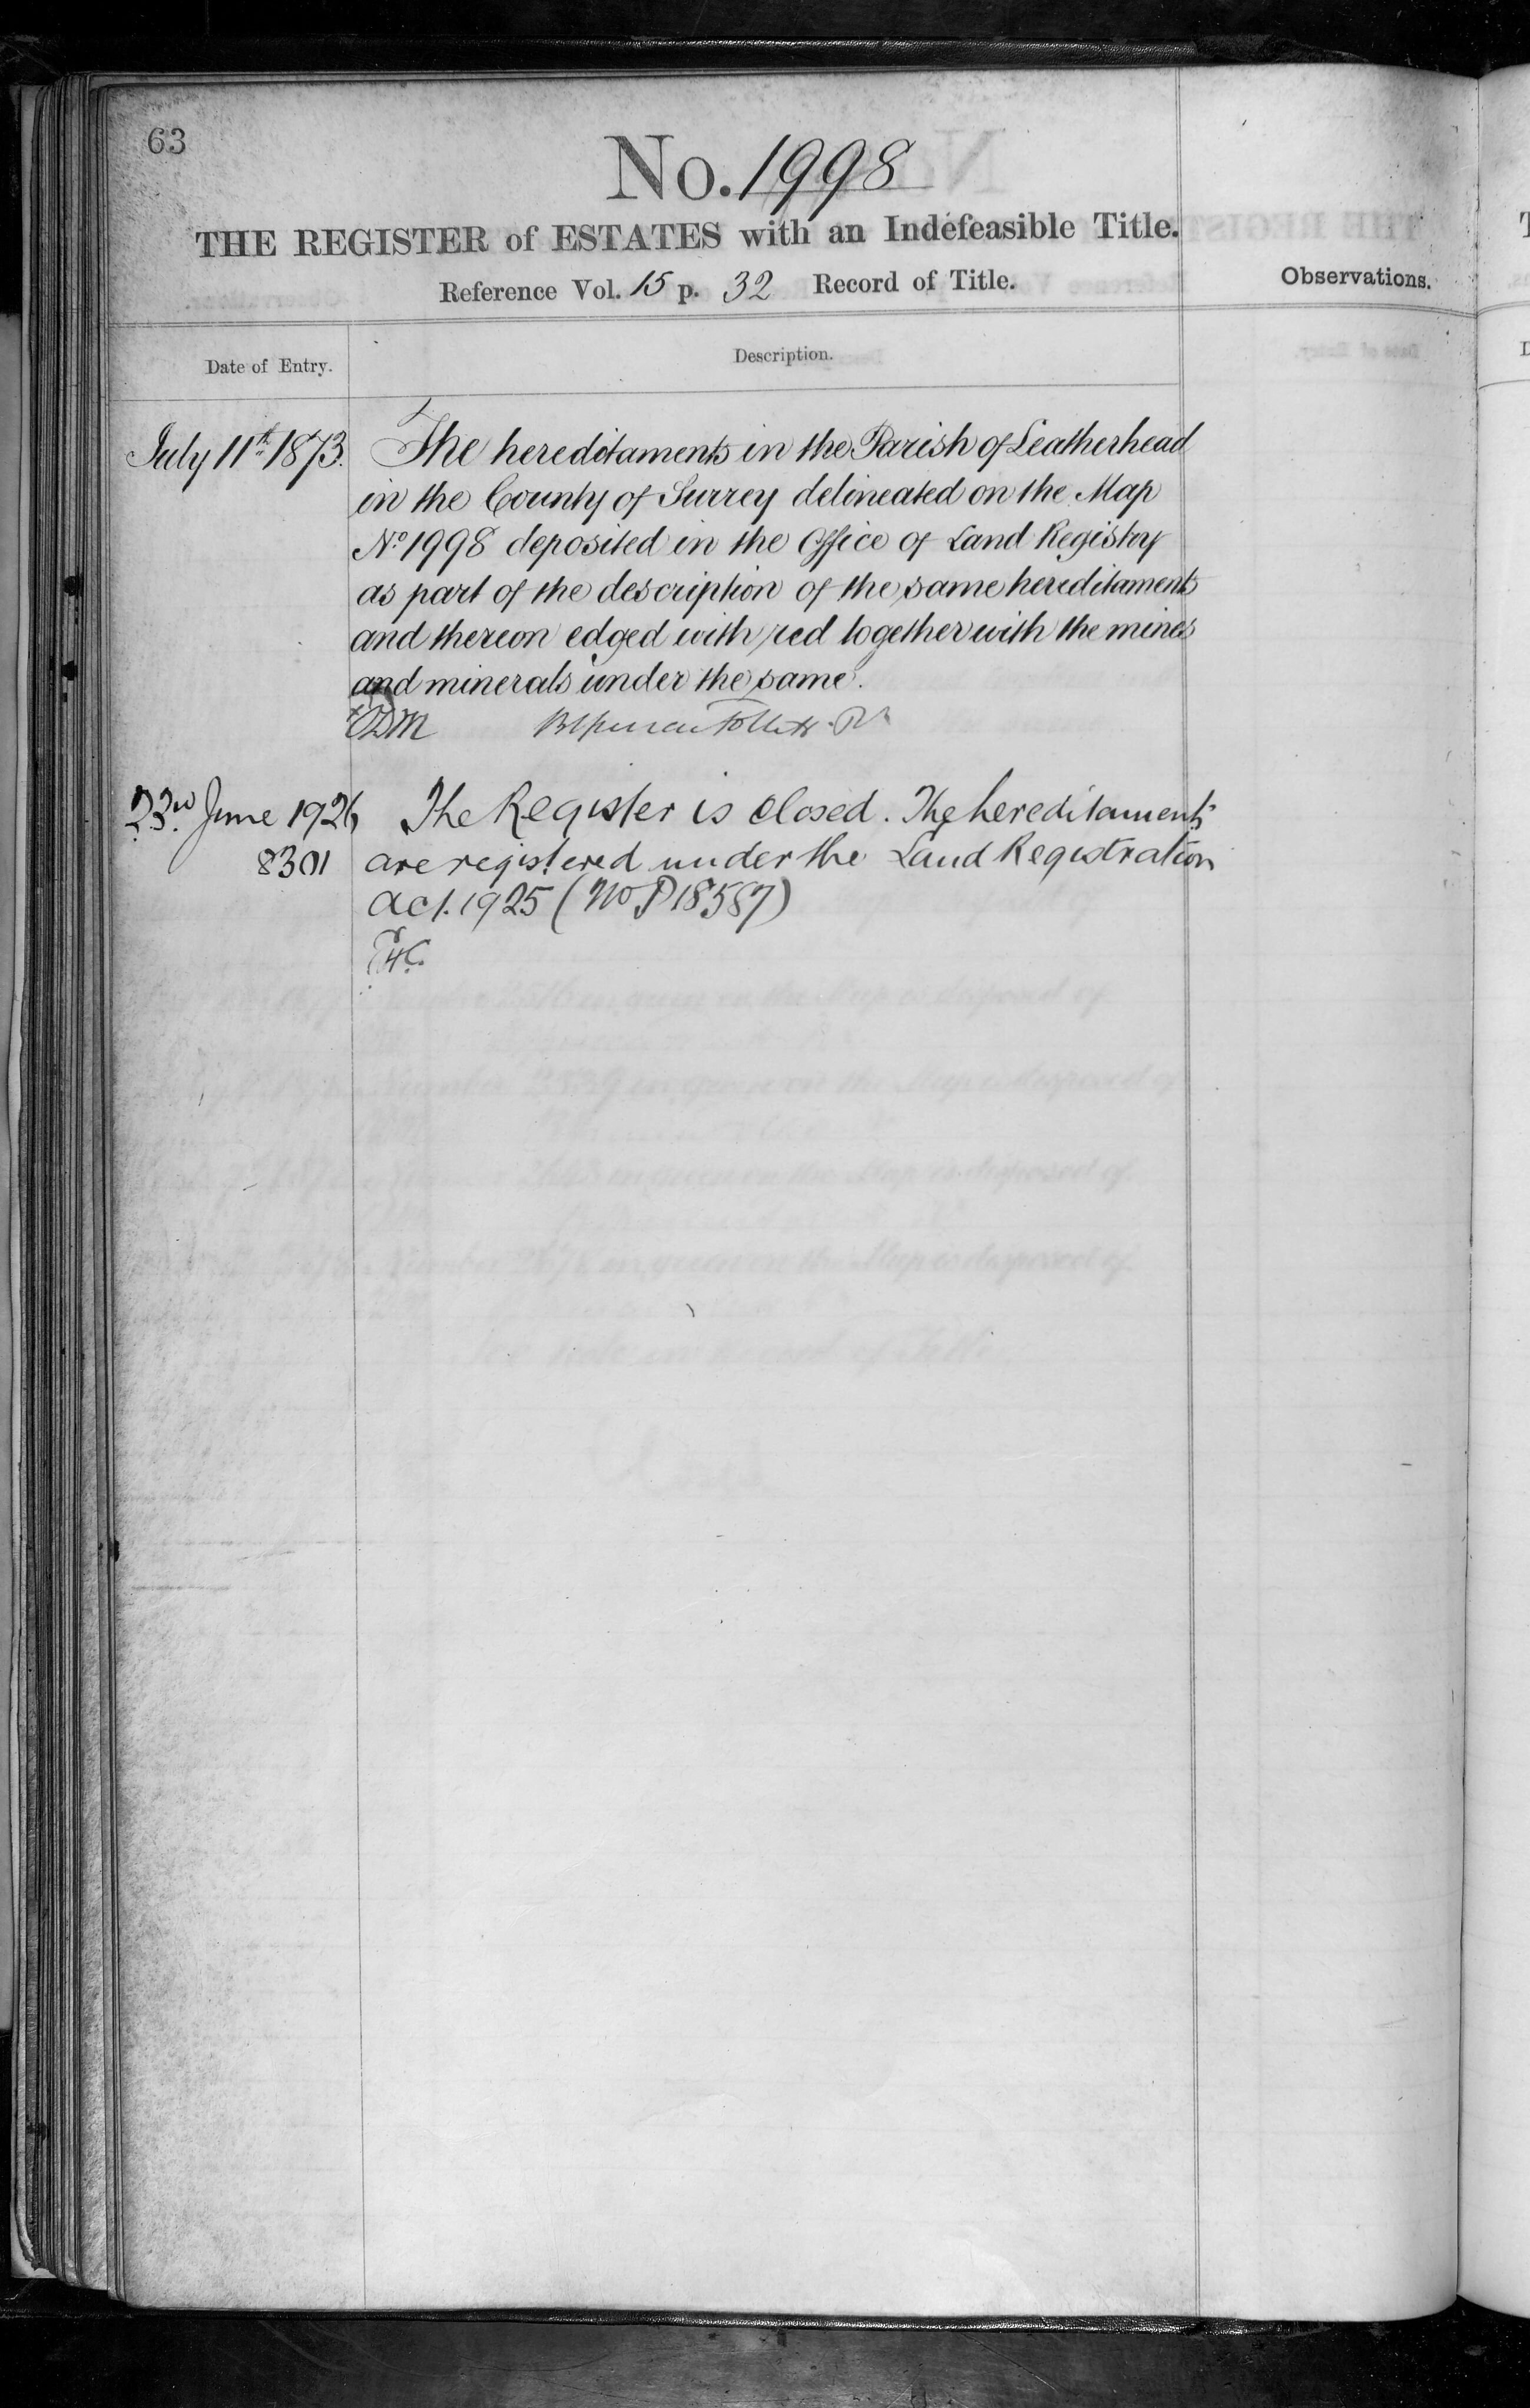 63
No. 1998
THE REGISTER of ESTATES with an Indefeasible Title.
Reference Vol. 15 p. 32 Record of Title.
Observations.
Date of Entry.
Description.
July 11th 1873. The hereditaments in the Parish of Leatherhead
in the County of Surrey delineated on the Map
No 1998 deposited in the Office of Land Registry
as part of the description of the same hereditaments
and thereon edged with red together with the mines
and minerals under the same.
23rd June 1926 The Register is closed. The hereditaments
8301 are registered under the Land Registration
Act. 1925 (No P 18587)